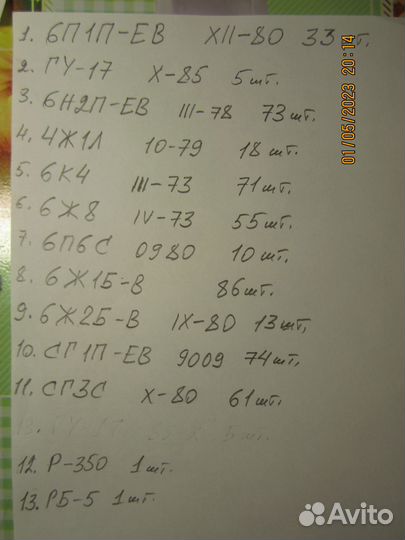 1. 6П1П-ЕВ XII-80 33 шт.
2. ГУ-17 X-85 5 шт.
3. 6Н2П-ЕВ III-78 73 шт.
4. 4Ж1Л 10-79 18 шт.
5. 6К4 III-73 71 шт.
6. 6Ж8 IV-73 55 шт.
7. 6П6С 0980 10 шт.
8. 6Ж1Б-В 86 шт.
9. 6Ж2Б-В IX-80 13 шт.
10. СГ1П-ЕВ 9009 74 шт.
11. СГ3С X-80 61 шт.
13. ГУ-17 5 шт.
12. Р-350 1 шт.
13. РБ-5 1 шт.
01/05/2023 20:14
Avito